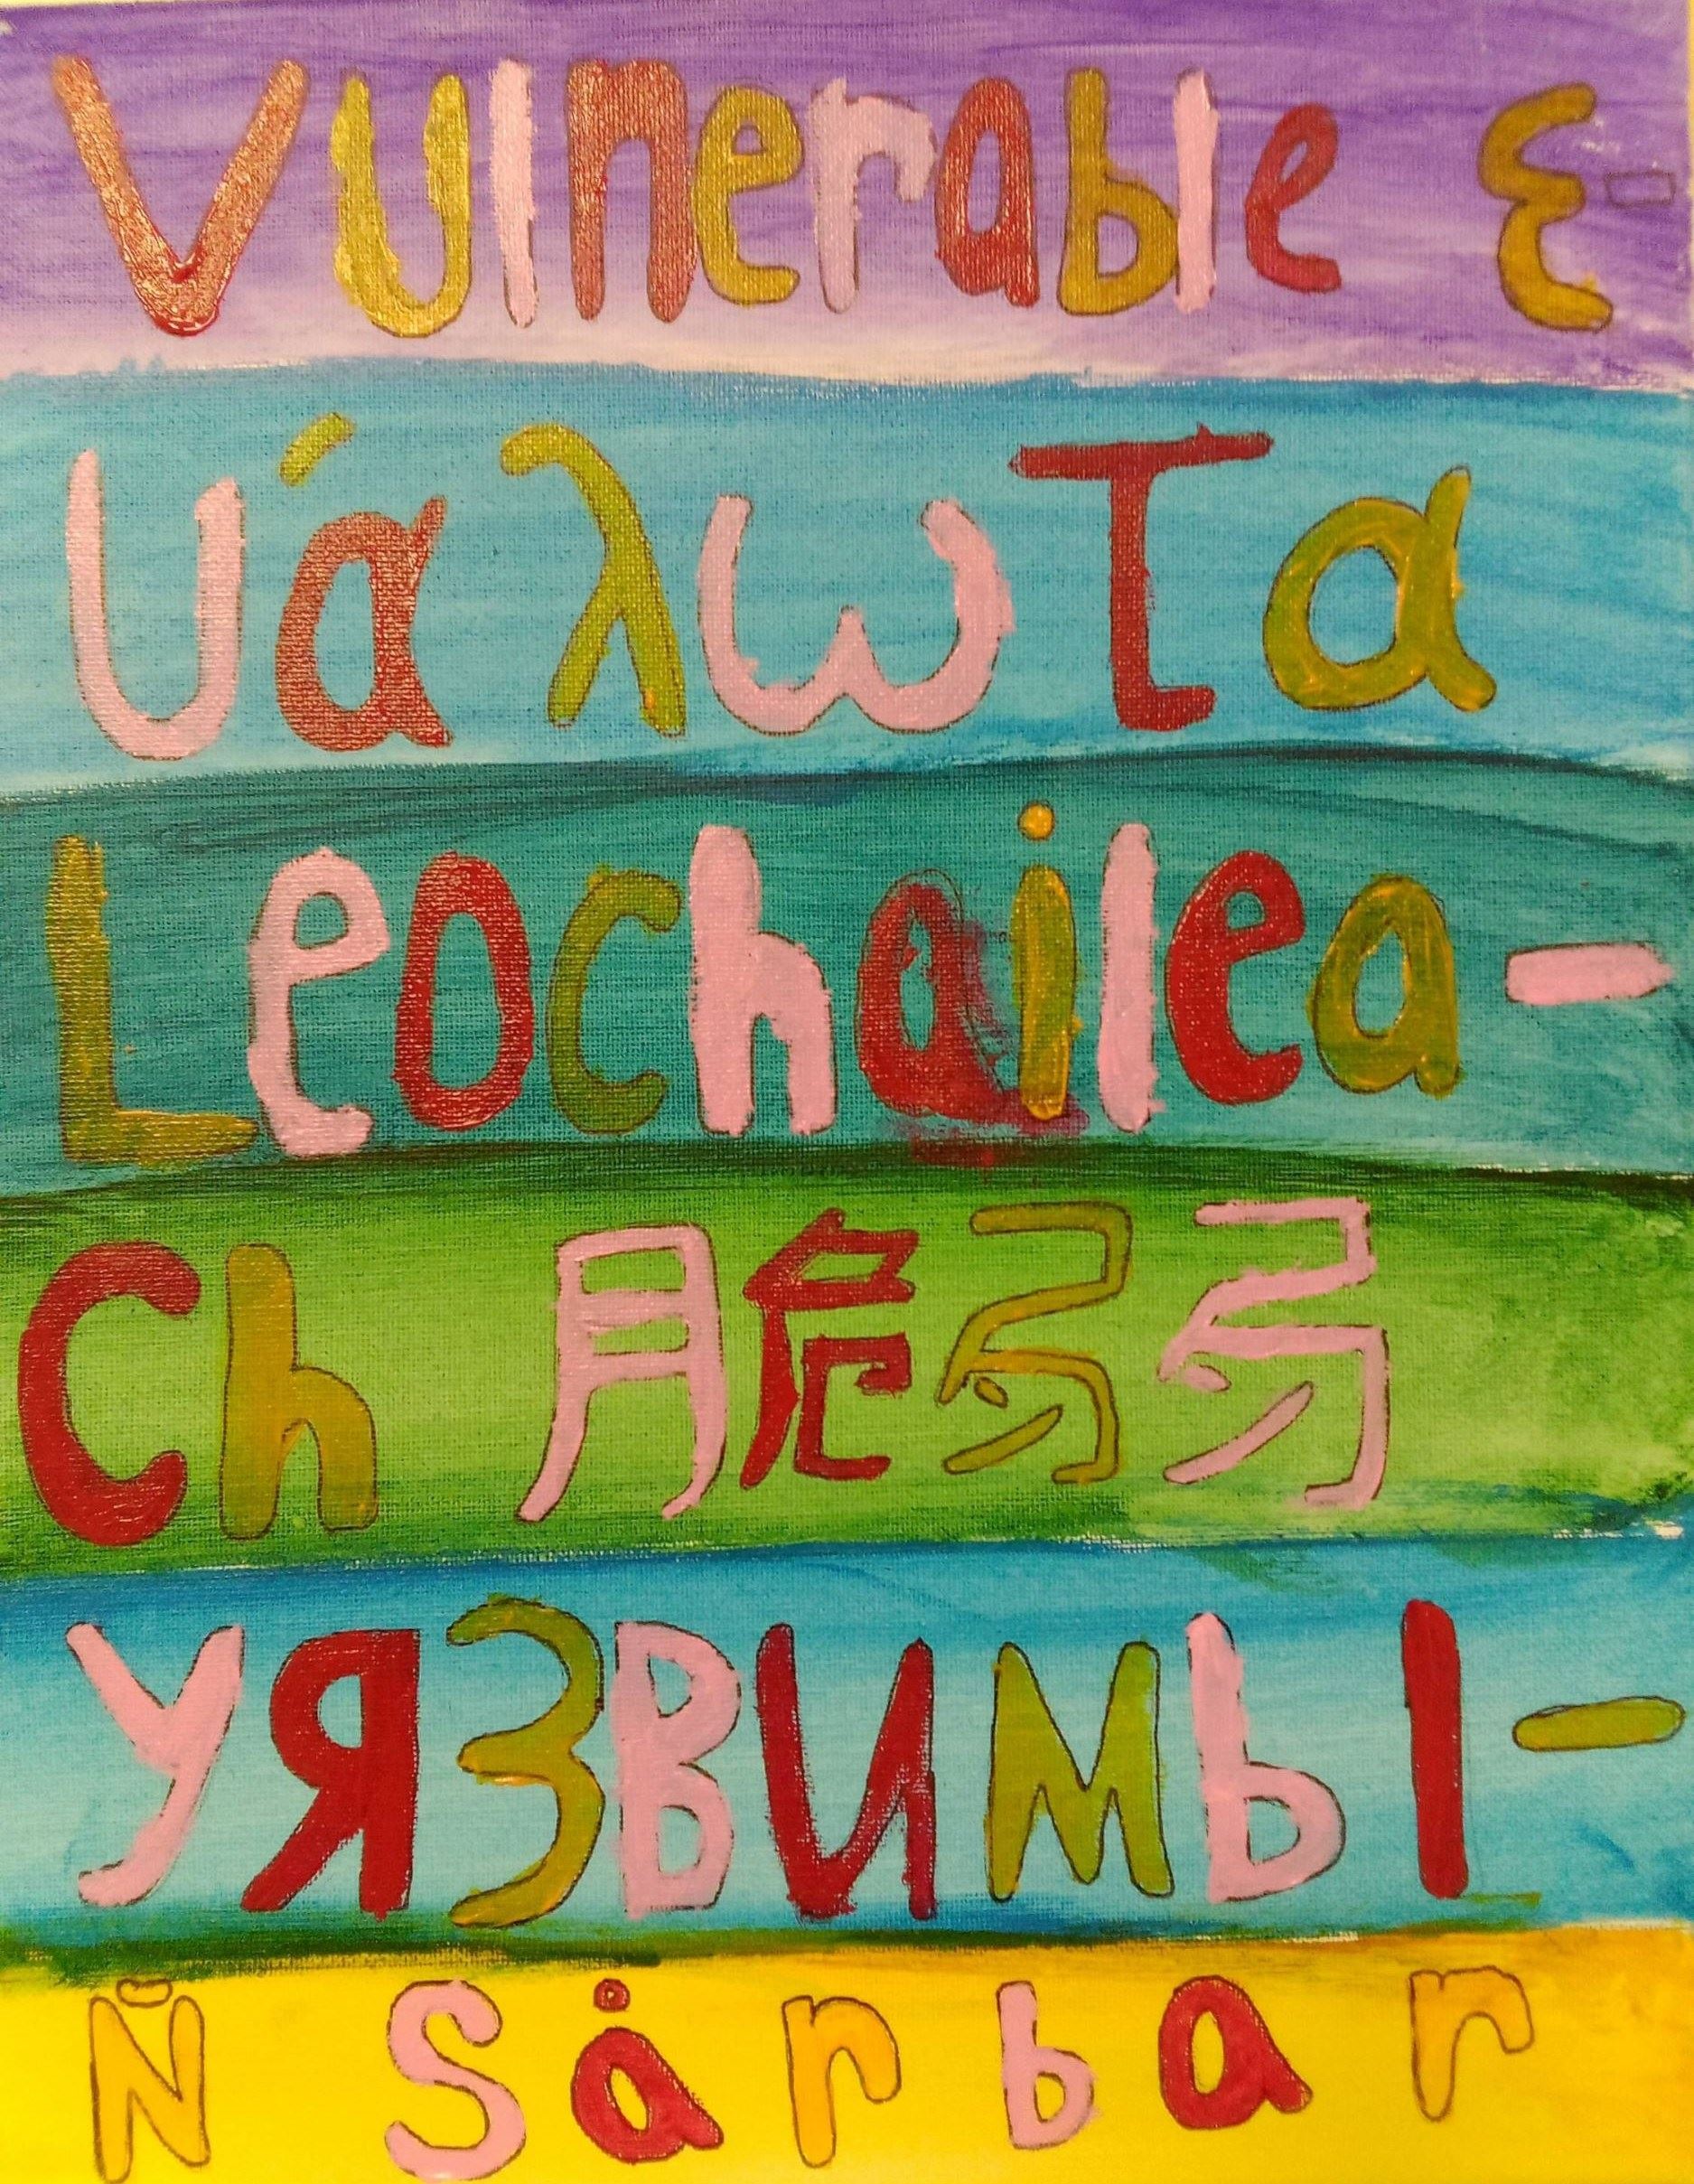 Vulnerable ε-
υάλωτα
Leochailea-
ch 脆弱
УЯЗВИМЫ-
Й Sårbar